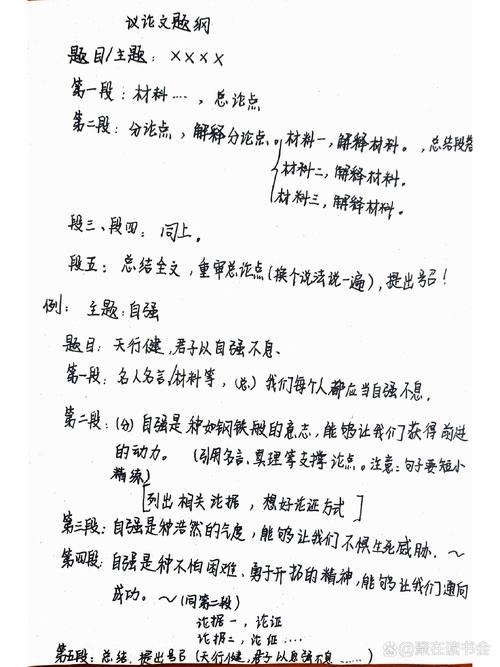 议论文题纲
题目/主题：××××
第一段：材料……，总论点
第二段：分论点，解释分论点。材料一，解释材料。，总结段落
材料二，解释材料。
材料三，解释材料。
段三、段四：同上。
段五：总结全文，重审总论点(换个说法说一遍)，提出号召！
例：主题：自强
题目：天行健，君子以自强不息、
第一段：名人名言/材料等，(总)我们每个人都应当自强不息.
第二段：(分)自强是种如钢铁般的意志，能够让我们获得前进
的动力。(引用名言、真理等支撑论点。注意：句子要短小
精练)
[列出相关论据，想好论证方式]
第三段：自强是种浩然的气度，能够让我们不惧生死威胁.～
第四段：自强是种不怕困难、勇于开拓的精神，能够让我们通向
成功。～(同第二段)
论据一，论证
论据二，论证....
第五段：总结.提出号召(天行健，君子以自强不息……)
@聚在读书会